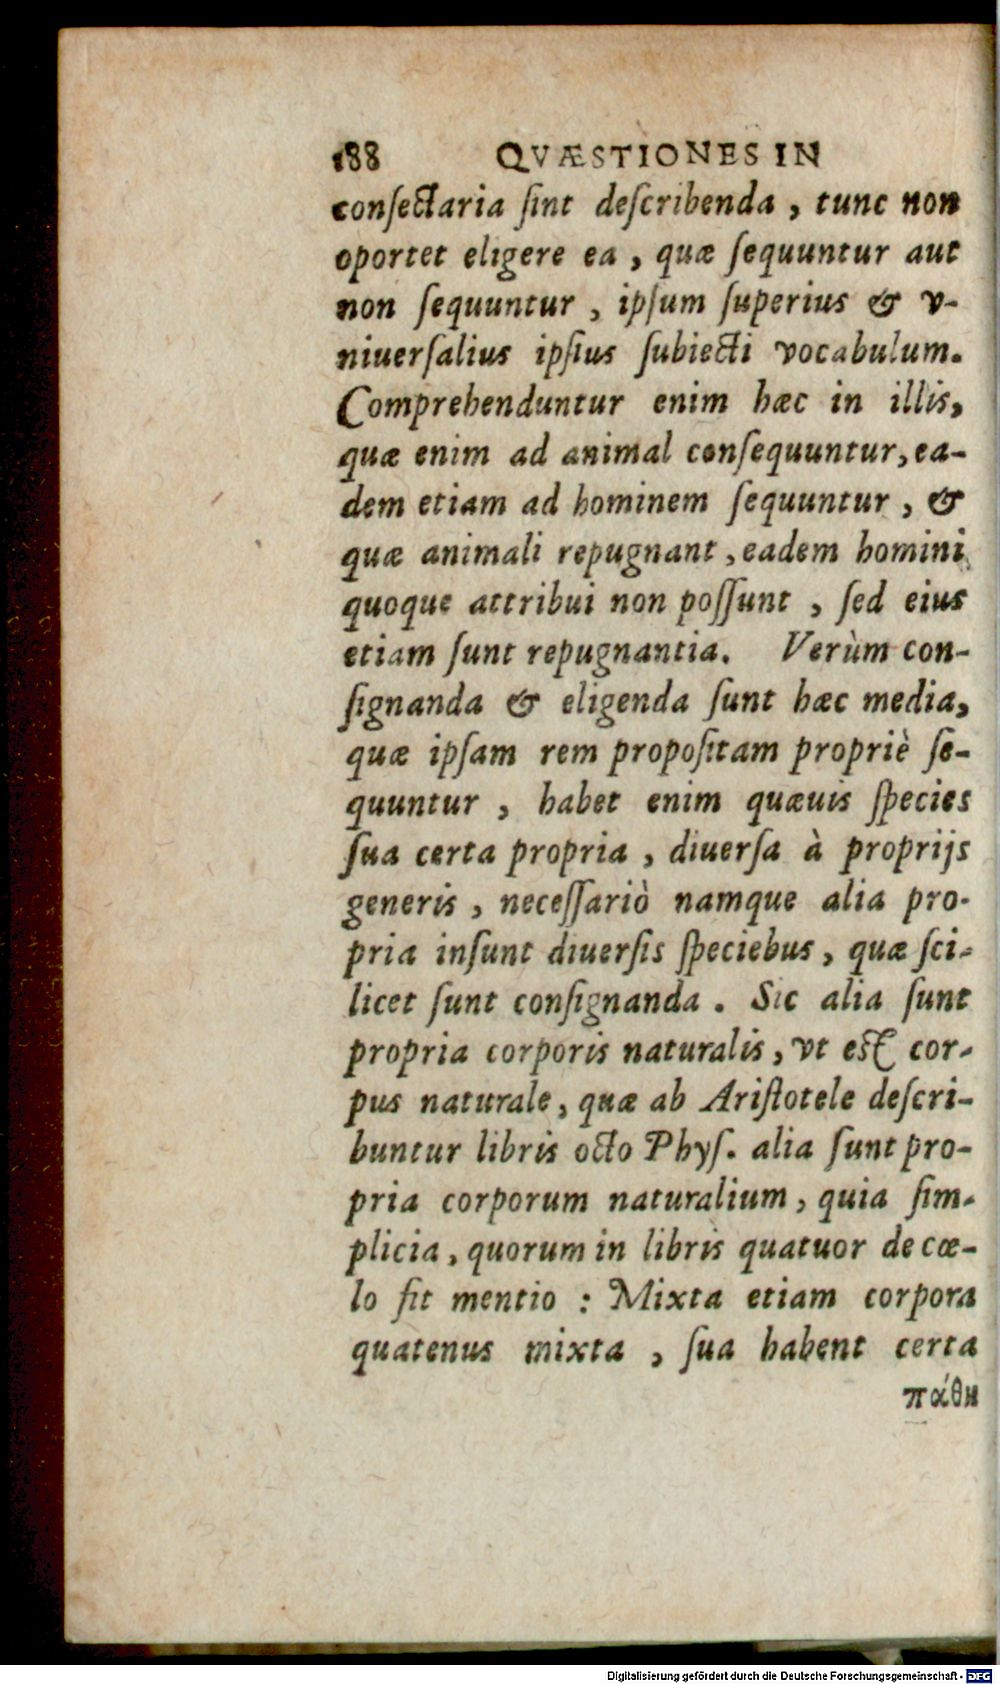 188 QVÆSTIONES IN
conſectaria ſint deſcribenda , tunc non
oportet eligere ea , quæ ſequuntur aut
non ſequuntur , ipſum ſuperius & v-
niuerſalius ipſius ſubiecti vocabulum.
Comprehenduntur enim hæc in illis,
quæ enim ad animal conſequuntur, ea-
dem etiam ad hominem ſequuntur , &
quæ animali repugnant , eadem homini
quoque attribui non poſſunt , ſed eius
etiam ſunt repugnantia. Verùm con-
ſignanda & eligenda ſunt hæc media,
quæ ipſam rem propoſitam propriè ſe-
quuntur , habet enim quæuis ſpecies
ſua certa propria , diuerſa à proprijs
generis , neceſſariò namque alia pro-
pria inſunt diuerſis ſpeciebus , quæ ſci-
licet ſunt conſignanda . Sic alia ſunt
propria corporis naturalis , vt eſt cor-
pus naturale , quæ ab Ariſtotele deſcri-
buntur libris octo Phyſ. alia ſunt pro-
pria corporum naturalium , quia ſim-
plicia , quorum in libris quatuor de cœ-
lo fit mentio : Mixta etiam corpora
quatenus mixta , ſua habent certa
πάθη
Digitalisierung gefördert durch die Deutsche Forschungsgemeinschaft - DFG